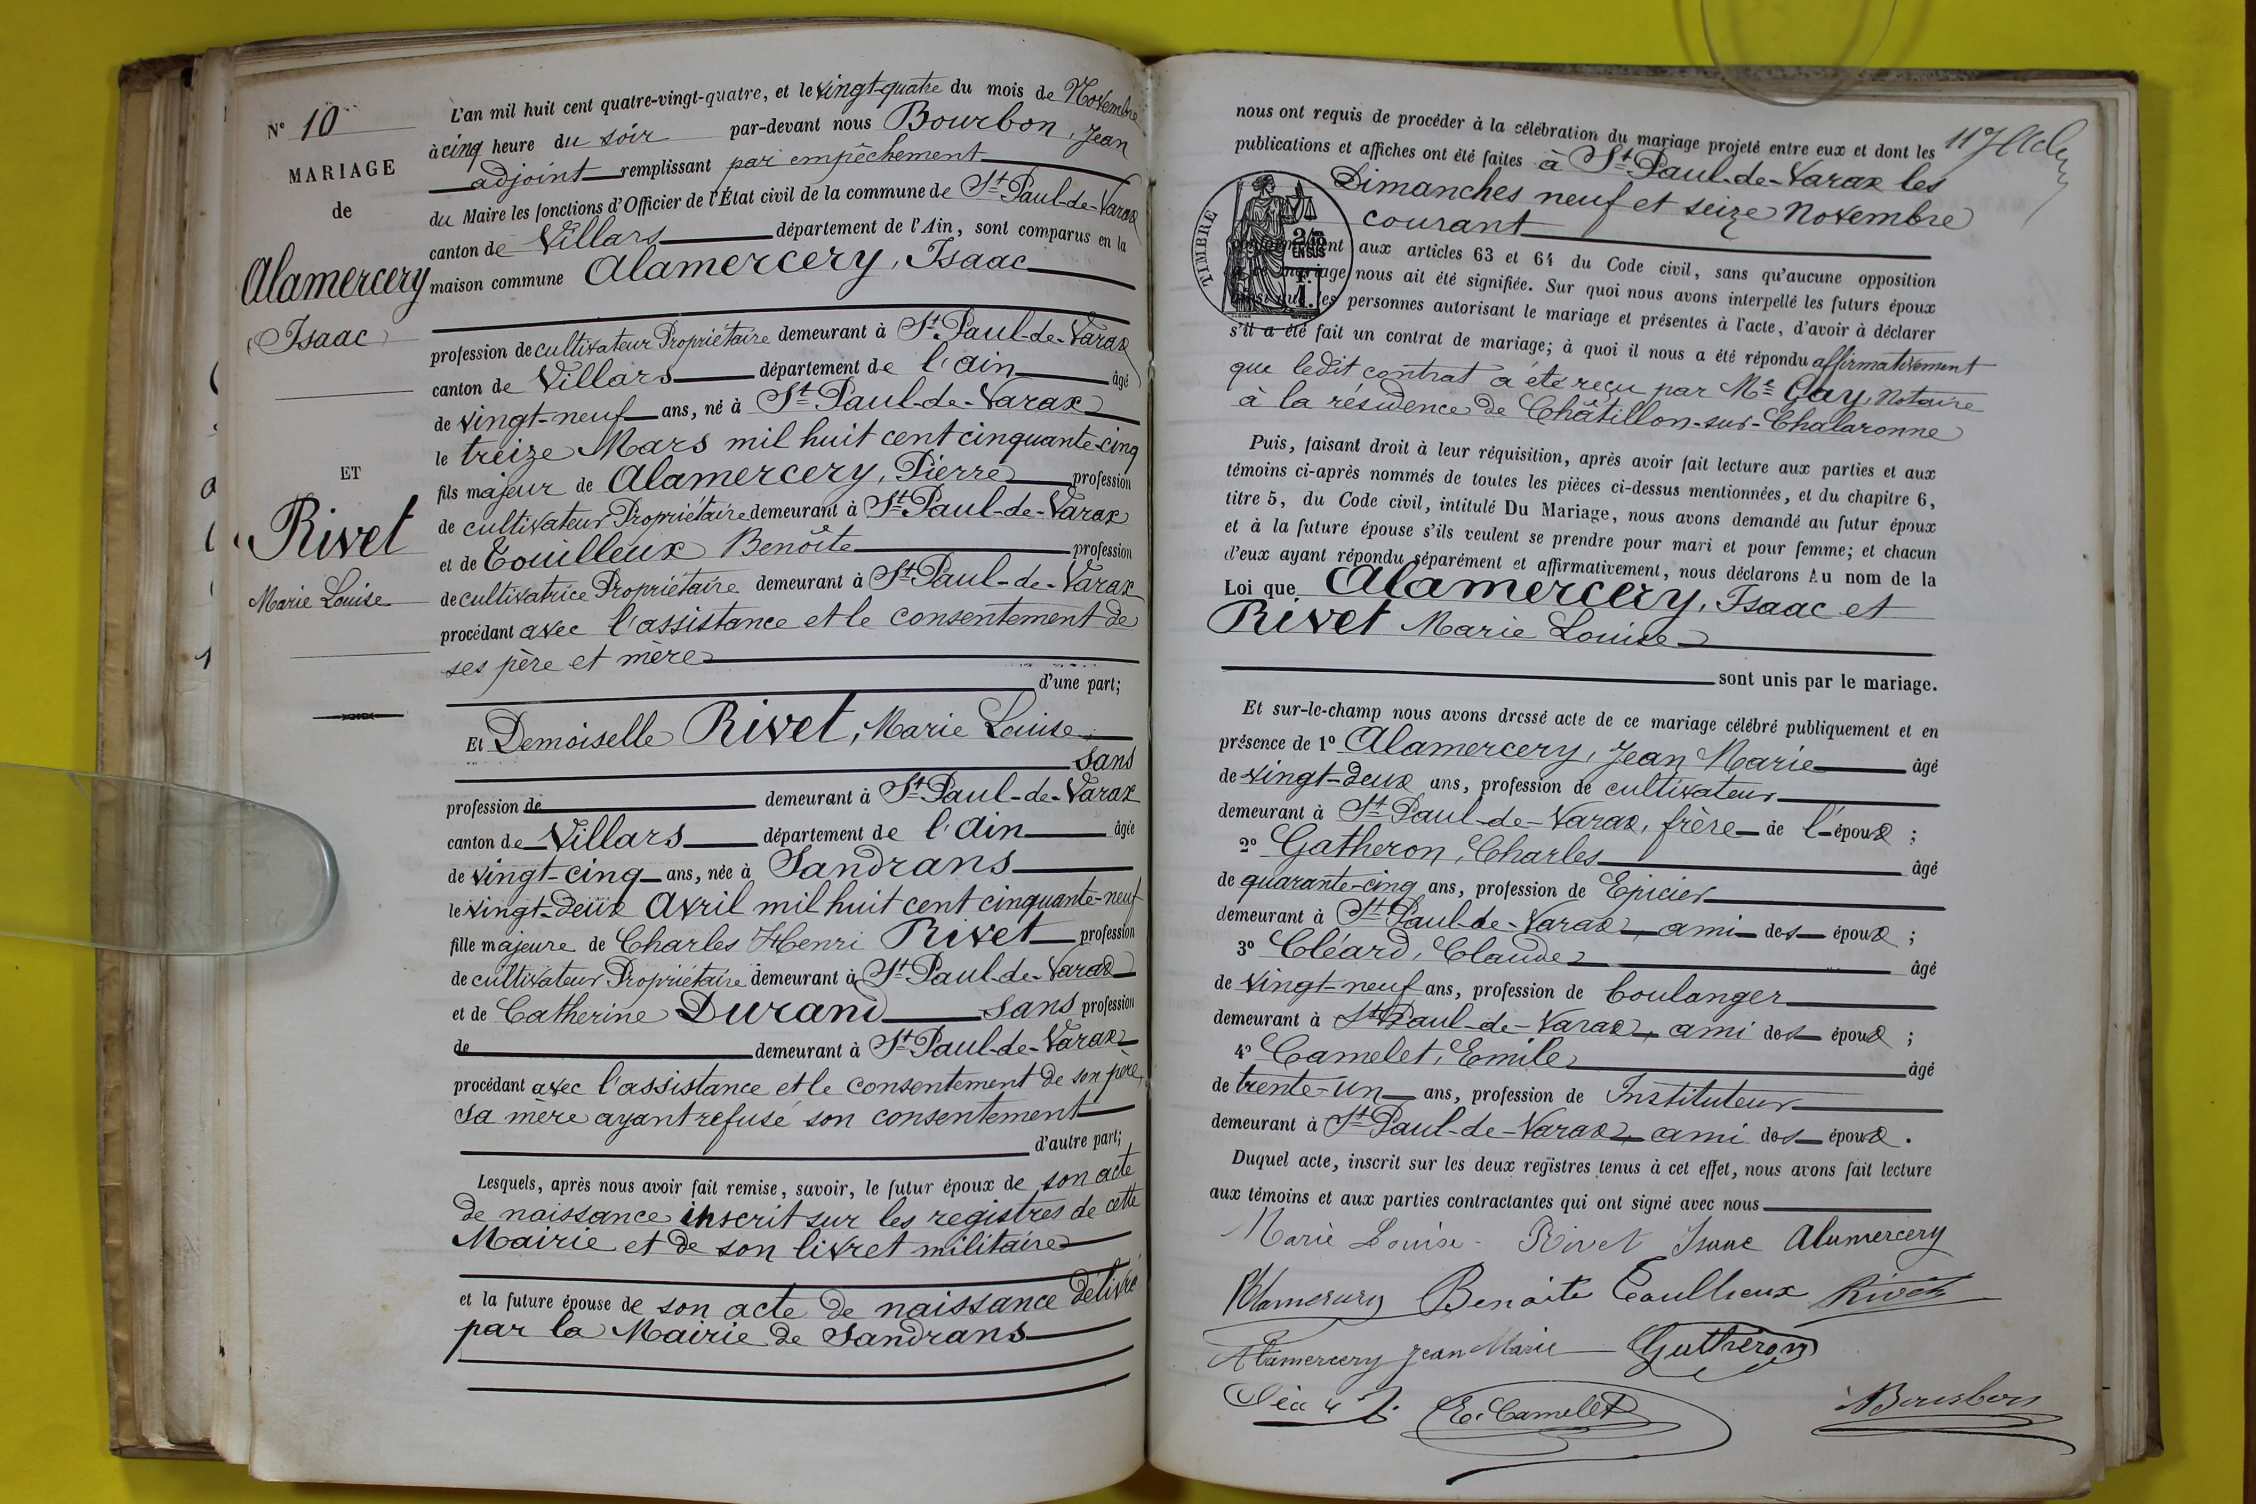 N° 10
MARIAGE
de
Alamercery
Isaac
ET
Rivet
Marie Louise
L'an mil huit cent quatre-vingt-quatre, et le vingt-quatre du mois de Novembre
à cinq heure du soir par-devant nous Bourbon, Jean
adjoint remplissant par empêchement
du Maire les fonctions d'Officier de l'État civil de la commune de St Paul-de-Varax
canton de Villars département de l'Ain, sont comparus en la
maison commune Alamercery, Isaac
profession de cultivateur Propriétaire demeurant à St Paul-de-Varax
canton de Villars département de l'Ain âgé
de vingt-neuf ans, né à St Paul-de-Varax
le treize Mars mil huit cent cinquante-cinq
fils majeur de Alamercery, Pierre profession
de cultivateur Propriétaire demeurant à St Paul-de-Varax
et de Touilleux Benoîte profession
de cultivatrice Propriétaire demeurant à St Paul-de-Varax
procédant avec l'assistance et le consentement de
ses père et mère
d'une part;
Et Demoiselle Rivet, Marie Louise
sans
profession de demeurant à St Paul-de-Varax
canton de Villars département de l'Ain âgée
de vingt-cinq ans, née à Sandrans
le vingt-deux Avril mil huit cent cinquante-neuf
fille majeure de Charles Henri Rivet profession
de cultivateur Propriétaire demeurant à St Paul-de-Varax
et de Catherine Durand sans profession
de demeurant à St Paul-de-Varax
procédant avec l'assistance et le consentement de son père,
sa mère ayant refusé son consentement
d'autre part;
Lesquels, après nous avoir fait remise, savoir, le futur époux de son acte
de naissance inscrit sur les registres de cette
Mairie et de son livret militaire
et la future épouse de son acte de naissance délivré
par la Mairie de Sandrans
nous ont requis de procéder à la célébration du mariage projeté entre eux et dont les
publications et affiches ont été faites à St Paul-de-Varax les
Dimanches neuf et seize Novembre
courant
TIMBRE
2/10
EN SUS
F.
1.
conformément aux articles 63 et 64 du Code civil, sans qu'aucune opposition
à ce mariage nous ait été signifiée. Sur quoi nous avons interpellé les futurs époux
ainsi que les personnes autorisant le mariage et présentes à l'acte, d'avoir à déclarer
s'il a été fait un contrat de mariage; à quoi il nous a été répondu affirmativement
que ledit contrat a été reçu par Me Gay, Notaire
à la résidence de Châtillon-sur-Chalaronne
Puis, faisant droit à leur réquisition, après avoir fait lecture aux parties et aux
témoins ci-après nommés de toutes les pièces ci-dessus mentionnées, et du chapitre 6,
titre 5, du Code civil, intitulé Du Mariage, nous avons demandé au futur époux
et à la future épouse s'ils veulent se prendre pour mari et pour femme; et chacun
d'eux ayant répondu séparément et affirmativement, nous déclarons au nom de la
Loi que Alamercery, Isaac et
Rivet Marie Louise
sont unis par le mariage.
Et sur-le-champ nous avons dressé acte de ce mariage célébré publiquement et en
présence de 1° Alamercery, Jean Marie âgé
de vingt-deux ans, profession de cultivateur
demeurant à St Paul-de-Varax, frère de l'époux ;
2° Gatheron, Charles âgé
de quarante-cinq ans, profession de Epicier
demeurant à St Paul-de-Varax, ami des époux ;
3° Cléard, Claude âgé
de vingt-neuf ans, profession de boulanger
demeurant à St Paul-de-Varax, ami des époux ;
4° Camelet, Emile âgé
de trente-un ans, profession de Instituteur
demeurant à St Paul-de-Varax, ami des époux.
Duquel acte, inscrit sur les deux registres tenus à cet effet, nous avons fait lecture
aux témoins et aux parties contractantes qui ont signé avec nous
Marie Louise Rivet Isaac Alamercery
Alamercery Benoite Touillieux Rivet
Alamercery Jean Marie Gatheron
E. Camelet Bourbon